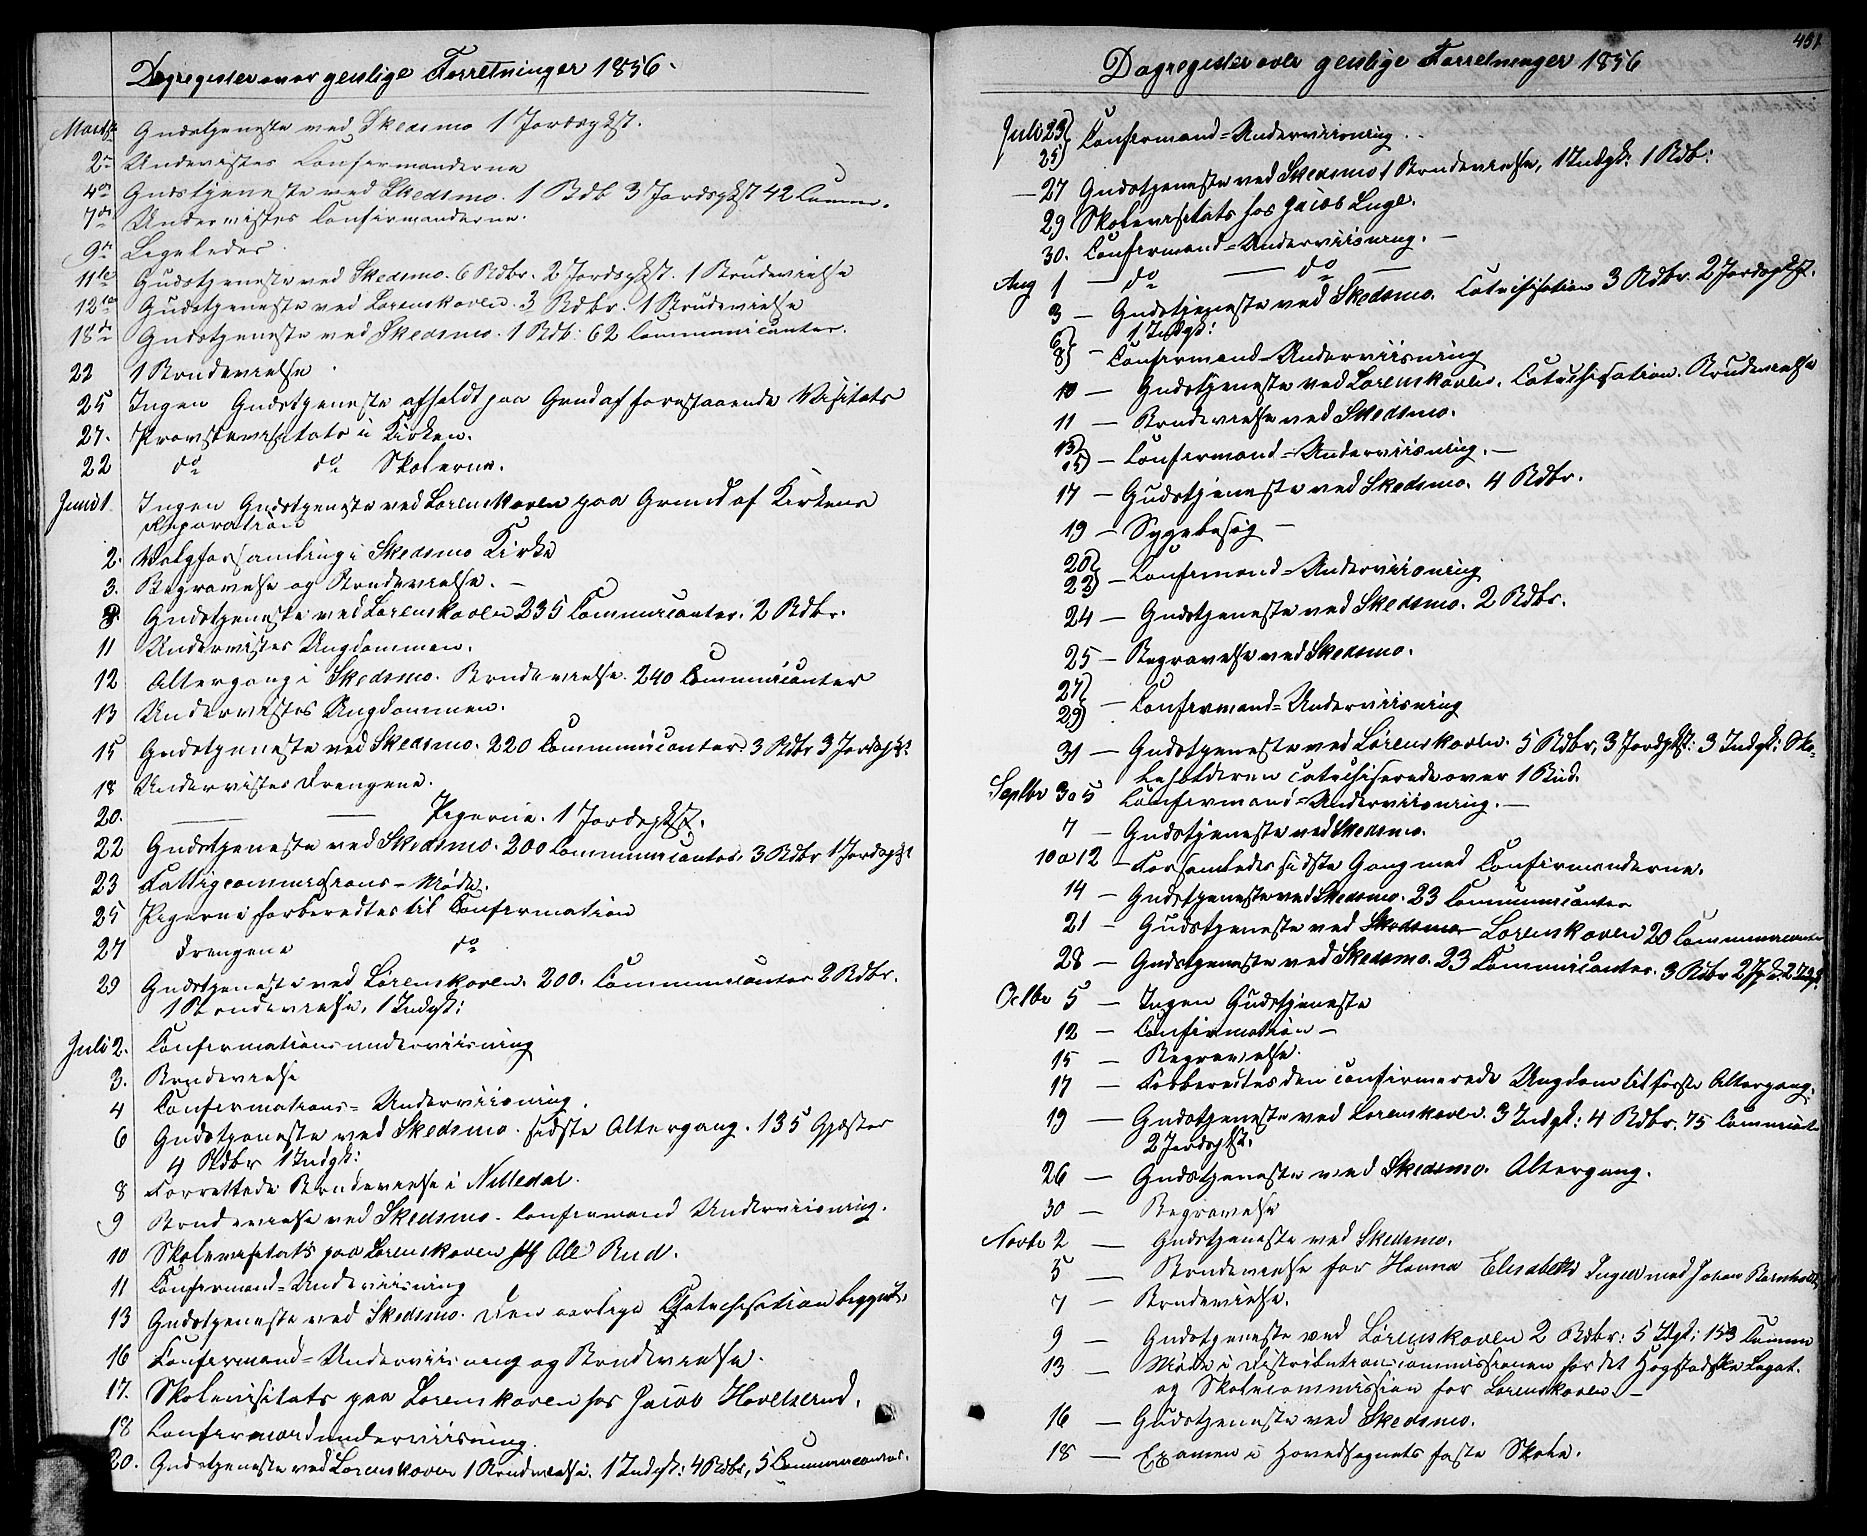 Dagregister over geistlige Forretninger 1856.
Marts Gudstjeneste ved Skedsmo 1 Jordspkst.
2den Undervistes Confirmanderne
4de Gudstjeneste ved Skedsmo. 1 Bdb 3 Jordspkst 42 Comm.
7de Undervistes Confirmanderne.
9de Ligeledes.
11te Gudstjeneste ved Skedsmo. 6 Bdbr. 2 Jordspkst. 1 Brudevielse
12te Gudstjeneste ved Lørenskoven. 3 Bdbr. 1 Brudevielse
18de Gudstjeneste ved Skedsmo. 1 Bdb: 62 Communicanter.
22 1 Brudevielse.
25 Ingen Gudstjeneste afholdt paa Grund af forestaaende Visitats
27. Provstevisitats i Kirken.
22 do do Skolerne.
Juni 1. Ingen Gudstjeneste ved Lørenskoven paa Grund af Kirkens
Reparation
2. Valgforsamling i Skedsmo Kirke
3. Begravelse og Brudevielse. –
8. Gudstjeneste ved Lørenskoven 235 Communicanter. 2 Bdbr.
11 Undervistes Ungdommen.
12 Altergang i Skedsmo. Brudevielse. 240 Communicanter
13 Undervistes Ungdommen.
15 Gudstjeneste ved Skedsmo. 220 Communicanter 3 Bdbr 3 Jordspkst
18 Undervistes Drengene.
20. — — Pigerne. 1 Jordspkst.
22 Gudstjeneste ved Skedsmo. 200 Communicanter. 3 Bdbr 1 Jordspkst
23 Fattigcommissions-Møde.
25 Pigerne forberedtes til Confirmation
27 Drengene do
29 Gudstjeneste ved Lørenskoven. 200. Communicanter 2 Bdbr.
1 Brudevielse, 1 Indgk:
Juli 2. Confirmationsunderviisning
3. Brudevielse
4 Confirmations-Underviisning.
6 Gudstjeneste ved Skedsmo. sidste Altergang. 135 Gjæster
4 Bdbr 1 Indgk:
8 Forrettede Brudevielse i Nittedal.
9 Brudevielse ved Skedsmo. Confirmand Underviisning.
10 Skolevisitats paa Lørenskoven hos Ole Rud.
11 Confirmand-Underviisning
13 Gudstjeneste ved Skedsmo. Den aarlige Catechisation begynt.
16 Confirmand-Underviisning og Brudevielse.
17. Skolevisitats paa Lørenskoven hos Jacob Hovelsrud.
18 Confirmandunderviisning.
20. Gudstjeneste ved Lørenskoven 1 Brudevielse. 1 Indgk: 4 Bdbr, 5 Communicanter.
451.
Dagregister over geistlige Forretninger 1856
Juli 23
25 } Confirmand-Underviisning.
— 27 Gudstjeneste ved Skedsmo 1 Brudevielse, 1 Indgk: 1 Bdb:
29 Skolevisitats hos Jacob Luge.
30. Confirmand-Underviisning. –
Aug 1 — do — do —
3 — Gudstjeneste ved Skedsmo. Catechisation 3 Bdbr. 2 Jordspkst.
1 Indgk:
6
8 } — Confirmand-Underviisning
10 — Gudstjeneste ved Lørenskoven. Catechisation. Brudevielse
11 — Brudevielse ved Skedsmo.
13
15 } — Confirmand-Underviisning. —
17 — Gudstjeneste ved Skedsmo. 4 Bdbr.
19 — Sygebesøg —
20
22 } — Confirmand-Underviisning
24 — Gudstjeneste ved Skedsmo. 2 Bdbr.
25 — Begravelse ved Skedsmo.
27
29 } — Confirmand-Underviisning
31 — Gudstjeneste ved Lørenskoven. 5 Bdbr, 3 Jordspkst: 3 Indgk: Sko-
leholderen catechiserede over 1 Bud.
Septbr 3 o 5 Confirmand-Underviisning. —
7 — Gudstjeneste ved Skedsmo.
10 o 12 — Forsamledes sidste Gang med Confirmanderne.
14 — Gudstjeneste ved Skedsmo. 23 Communicanter
21 — Gudstjeneste ved Skedsmo Lørenskoven 20 Communicanter
28 — Gudstjeneste ved Skedsmo. 23 Communicanter. 3 Bdbr 2 Jpk. 2 Idgk.
Octbr 5 — Ingen Gudstjeneste
12 — Confirmation —
15 — Begravelse.
17 — Forberedtes den confirmerede Ungdom til første Altergang.
19 — Gudstjeneste ved Lørenskoven. 3 Indgk: 4 Bdbr. 75 Communict
2 Jordspkst:
26 — Gudstjeneste ved Skedsmo. Altergang.
30 — Begravelse
Novbr 2 — Gudstjeneste ved Skedsmo.
5 — Brudevielse for Hanna Elisabeth Inger med Johan Bernhold
7 — Brudevielse.
9 — Gudstjeneste ved Lørenskoven 2 Bdbr: 5 Idgk: 153 Commu
13 — Møde i Distributionscommissionen for det Høgstadske Legat.
og Skolecommission for Lørenskoven —
16 — Gudstjeneste ved Skedsmo.
18 — Examen i Hovedsognets faste Skole.